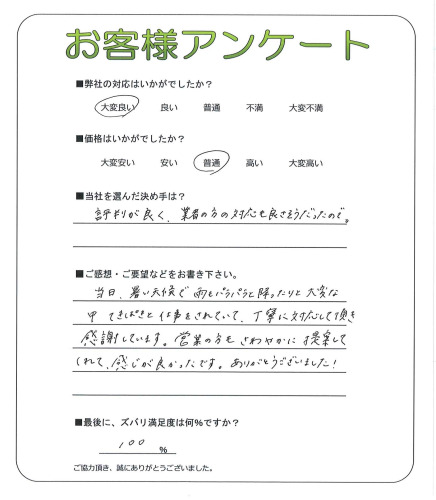 お客様アンケート
■弊社の対応はいかがでしたか?
大変良い 良い 普通 不満 大変不満
■価格はいかがでしたか?
大変安い 安い 普通 高い 大変高い
■当社を選んだ決め手は?
評判が良く、業者の方の対応も良さそうだったので。
■ご感想・ご要望などをお書き下さい。
当日、暑い天候で雨もパラパラと降ったりと大変な
中 てきぱきと仕事をされていて、丁寧に対応して頂き
感謝しています。営業の方もさわやかに提案して
くれて、感じが良かったです。ありがとうございました!
■最後に、ズバリ満足度は何%ですか?
100 %
ご協力頂き、誠にありがとうございました。